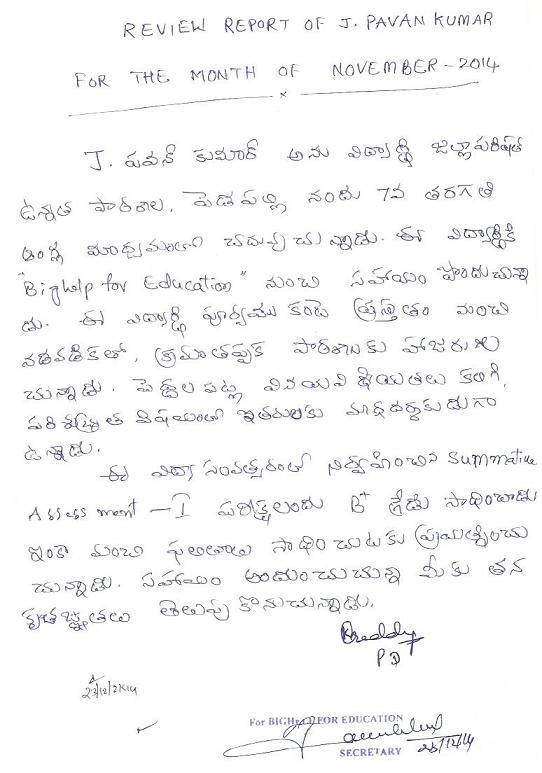 REVIEW REPORT OF J. PAVAN KUMAR
FOR THE MONTH OF NOVEMBER - 2014
J. పవన్ కుమార్ అను విద్యార్థి జిల్లాపరిషత్
ఉన్నత పాఠశాల, పెదపల్లి నందు 7వ తరగతి
ఆంగ్ల మాధ్యమంలో చదువుచున్నాడు. ఈ విద్యార్థికి
"Bighelp for Education" నుంచి సహాయం పొందుచున్నా
డు. ఈ విద్యార్థి పూర్వము కంటె ప్రస్తుతం మంచి
నడవడికతో, క్రమంతప్పక పాఠశాలకు హాజరు
చున్నాడు. పెద్దల పట్ల వినయవిధేయతలు కలిగి,
పరిశుభ్రత విషయంలో ఇతరులకు మార్గదర్శకుడుగా
ఉన్నాడు.
ఈ విద్యా సంవత్సరంలో నిర్వహించిన Summative
Assessment - I పరీక్షలందు B+ గ్రేడు సాధించాడు
ఇంకా మంచి ఫలితాలు సాధించుటకు ప్రయత్నించు
చున్నాడు. సహాయం అందించుచున్న మీకు తన
కృతజ్ఞతలు తెలుపుకొనుచున్నాడు.
Reddy
PD
23/12/2K14
For BIGHELP FOR EDUCATION
SECRETARY 23/12/14